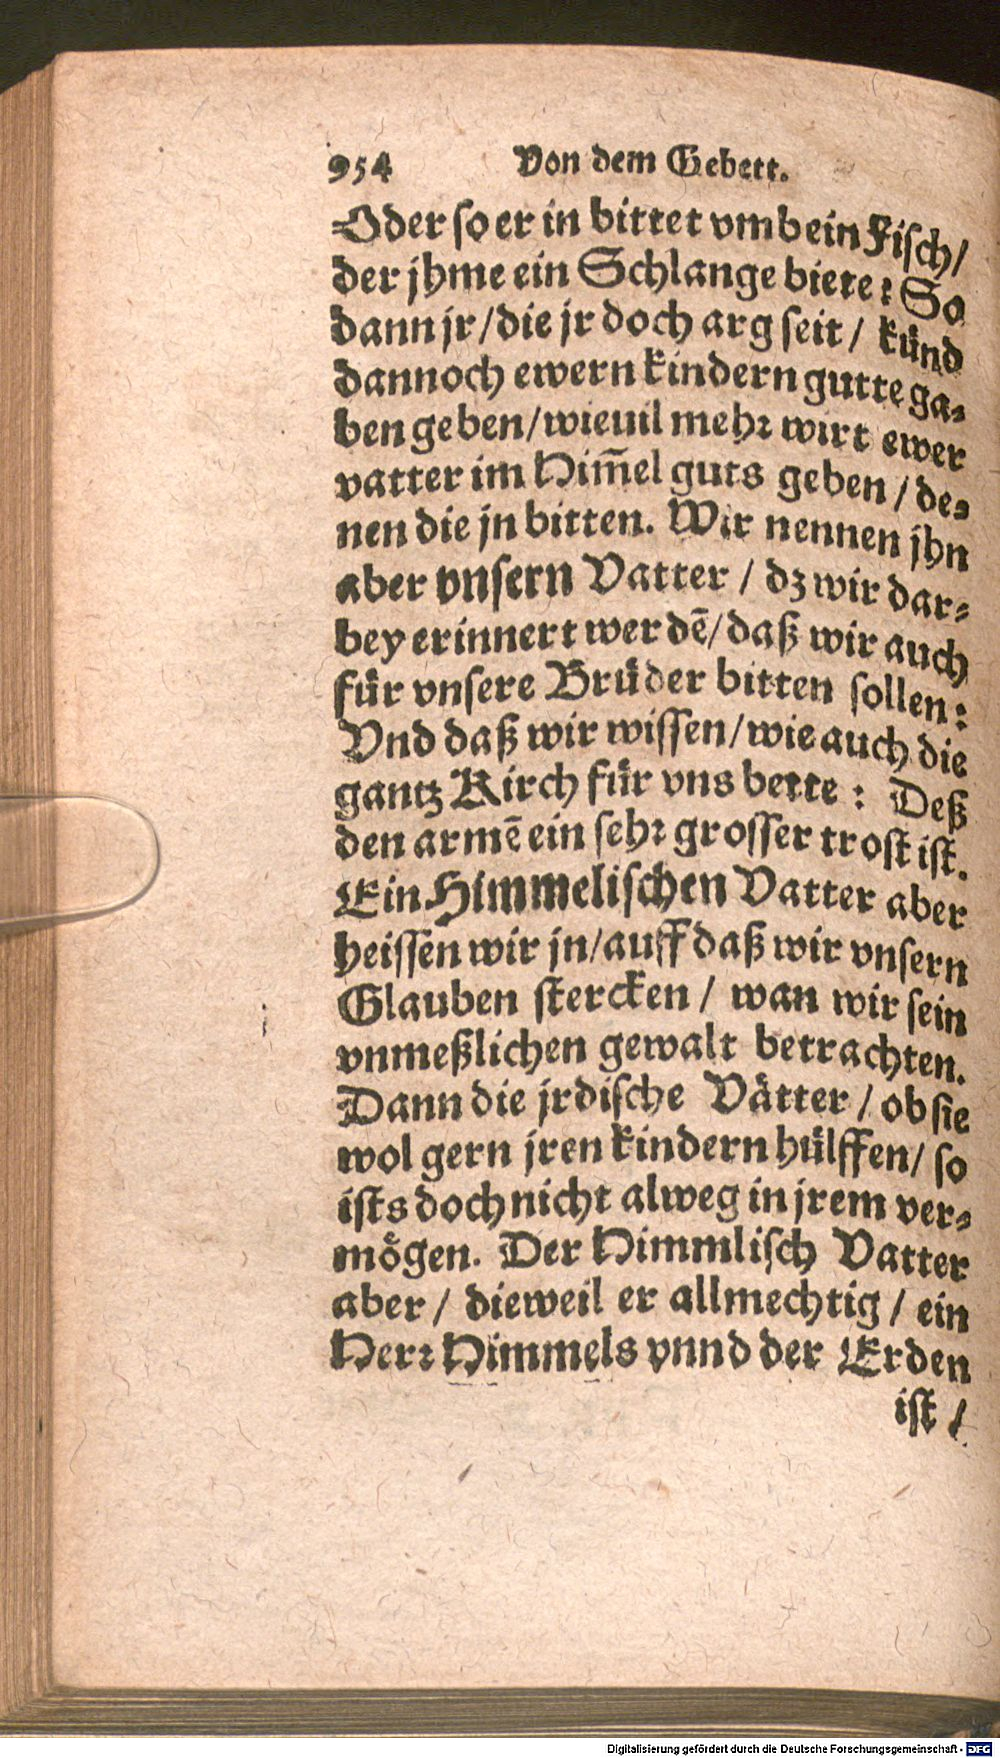 954 Von dem Gebett.
Oder so er in bittet vmb ein Fisch/
der jhme ein Schlange biete: So
dann jr/die jr doch arg seit/ künd
dannoch ewern kindern gutte ga-
ben geben/wieuil mehr wirt ewer
vatter im Him̃el guts geben/de-
nen die jn bitten. Wir nennen jhn
aber vnsern Vatter / dz wir dar-
bey erinnert werdẽ/daß wir auch
für vnsere Brüder bitten sollen:
Vnd daß wir wissen/wie auch die
gantz Kirch für vns bette: Deß
den armẽ ein sehr grosser trost ist.
Ein Himmelischen Vatter aber
heissen wir jn/auff daß wir vnsern
Glauben stercken / wan wir sein
vnmeßlichen gewalt betrachten.
Dann die jrdische Vätter / ob sie
wol gern jren kindern hülffen/ so
ists doch nicht alweg in jrem ver-
mögen. Der Himmlisch Vatter
aber/ dieweil er allmechtig / ein
Herr Himmels vnnd der Erden
ist /
Digitalisierung gefördert durch die Deutsche Forschungsgemeinschaft - DFG